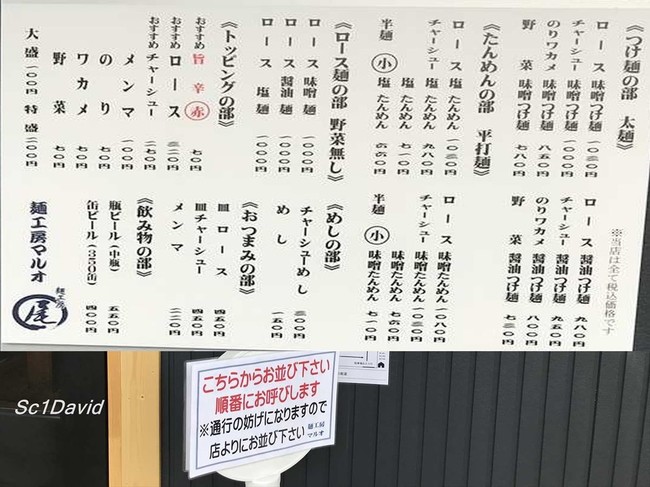 《つけ麺の部 太麺》
ロース 味噌つけ麺 一〇三〇円
チャーシュー 味噌つけ麺 一〇〇〇円
のりワカメ 味噌つけ麺 八五〇円
野菜 味噌つけ麺 七八〇円
※当店は全て税込価格です
ロース 醤油つけ麺 九八〇円
チャーシュー 醤油つけ麺 九八〇円
のりワカメ 醤油つけ麺 八〇〇円
野菜 醤油つけ麺 七三〇円
《たんめんの部 平打麺》
ロース 塩たんめん 一〇三〇円
チャーシュー 塩たんめん 九八〇円
塩たんめん 七一〇円
半麺 小 塩たんめん 六六〇円
ロース 味噌たんめん 一〇八〇円
チャーシュー 味噌たんめん 一〇三〇円
味噌たんめん 七六〇円
半麺 小 味噌たんめん 七一〇円
《ロース麺の部 野菜無し》
ロース 味噌麺 一〇〇〇円
ロース 醤油麺 一〇〇〇円
ロース 塩麺 一〇〇〇円
《めしの部》
チャーシューめし 三〇〇円
めし 一五〇円
《トッピングの部》
おすすめ 旨辛 赤 七〇円
おすすめ ロース 三二〇円
おすすめ チャーシュー 二七〇円
メンマ 一〇〇円
のり 七〇円
ワカメ 七〇円
野菜 七〇円
大盛 一〇〇円 特盛 二〇〇円
《おつまみの部》
皿ロース 四五〇円
皿チャーシュー 四五〇円
メンマ 二二〇円
《飲み物の部》
瓶ビール(中瓶) 五五〇円
缶ビール(350缶) 四〇〇円
麺工房マルオ
麺工房
尾
こちらからお並び下さい
順番にお呼びします
※通行の妨げになりますので
店よりにお並び下さい
麺工房
マルオ
Sc1David